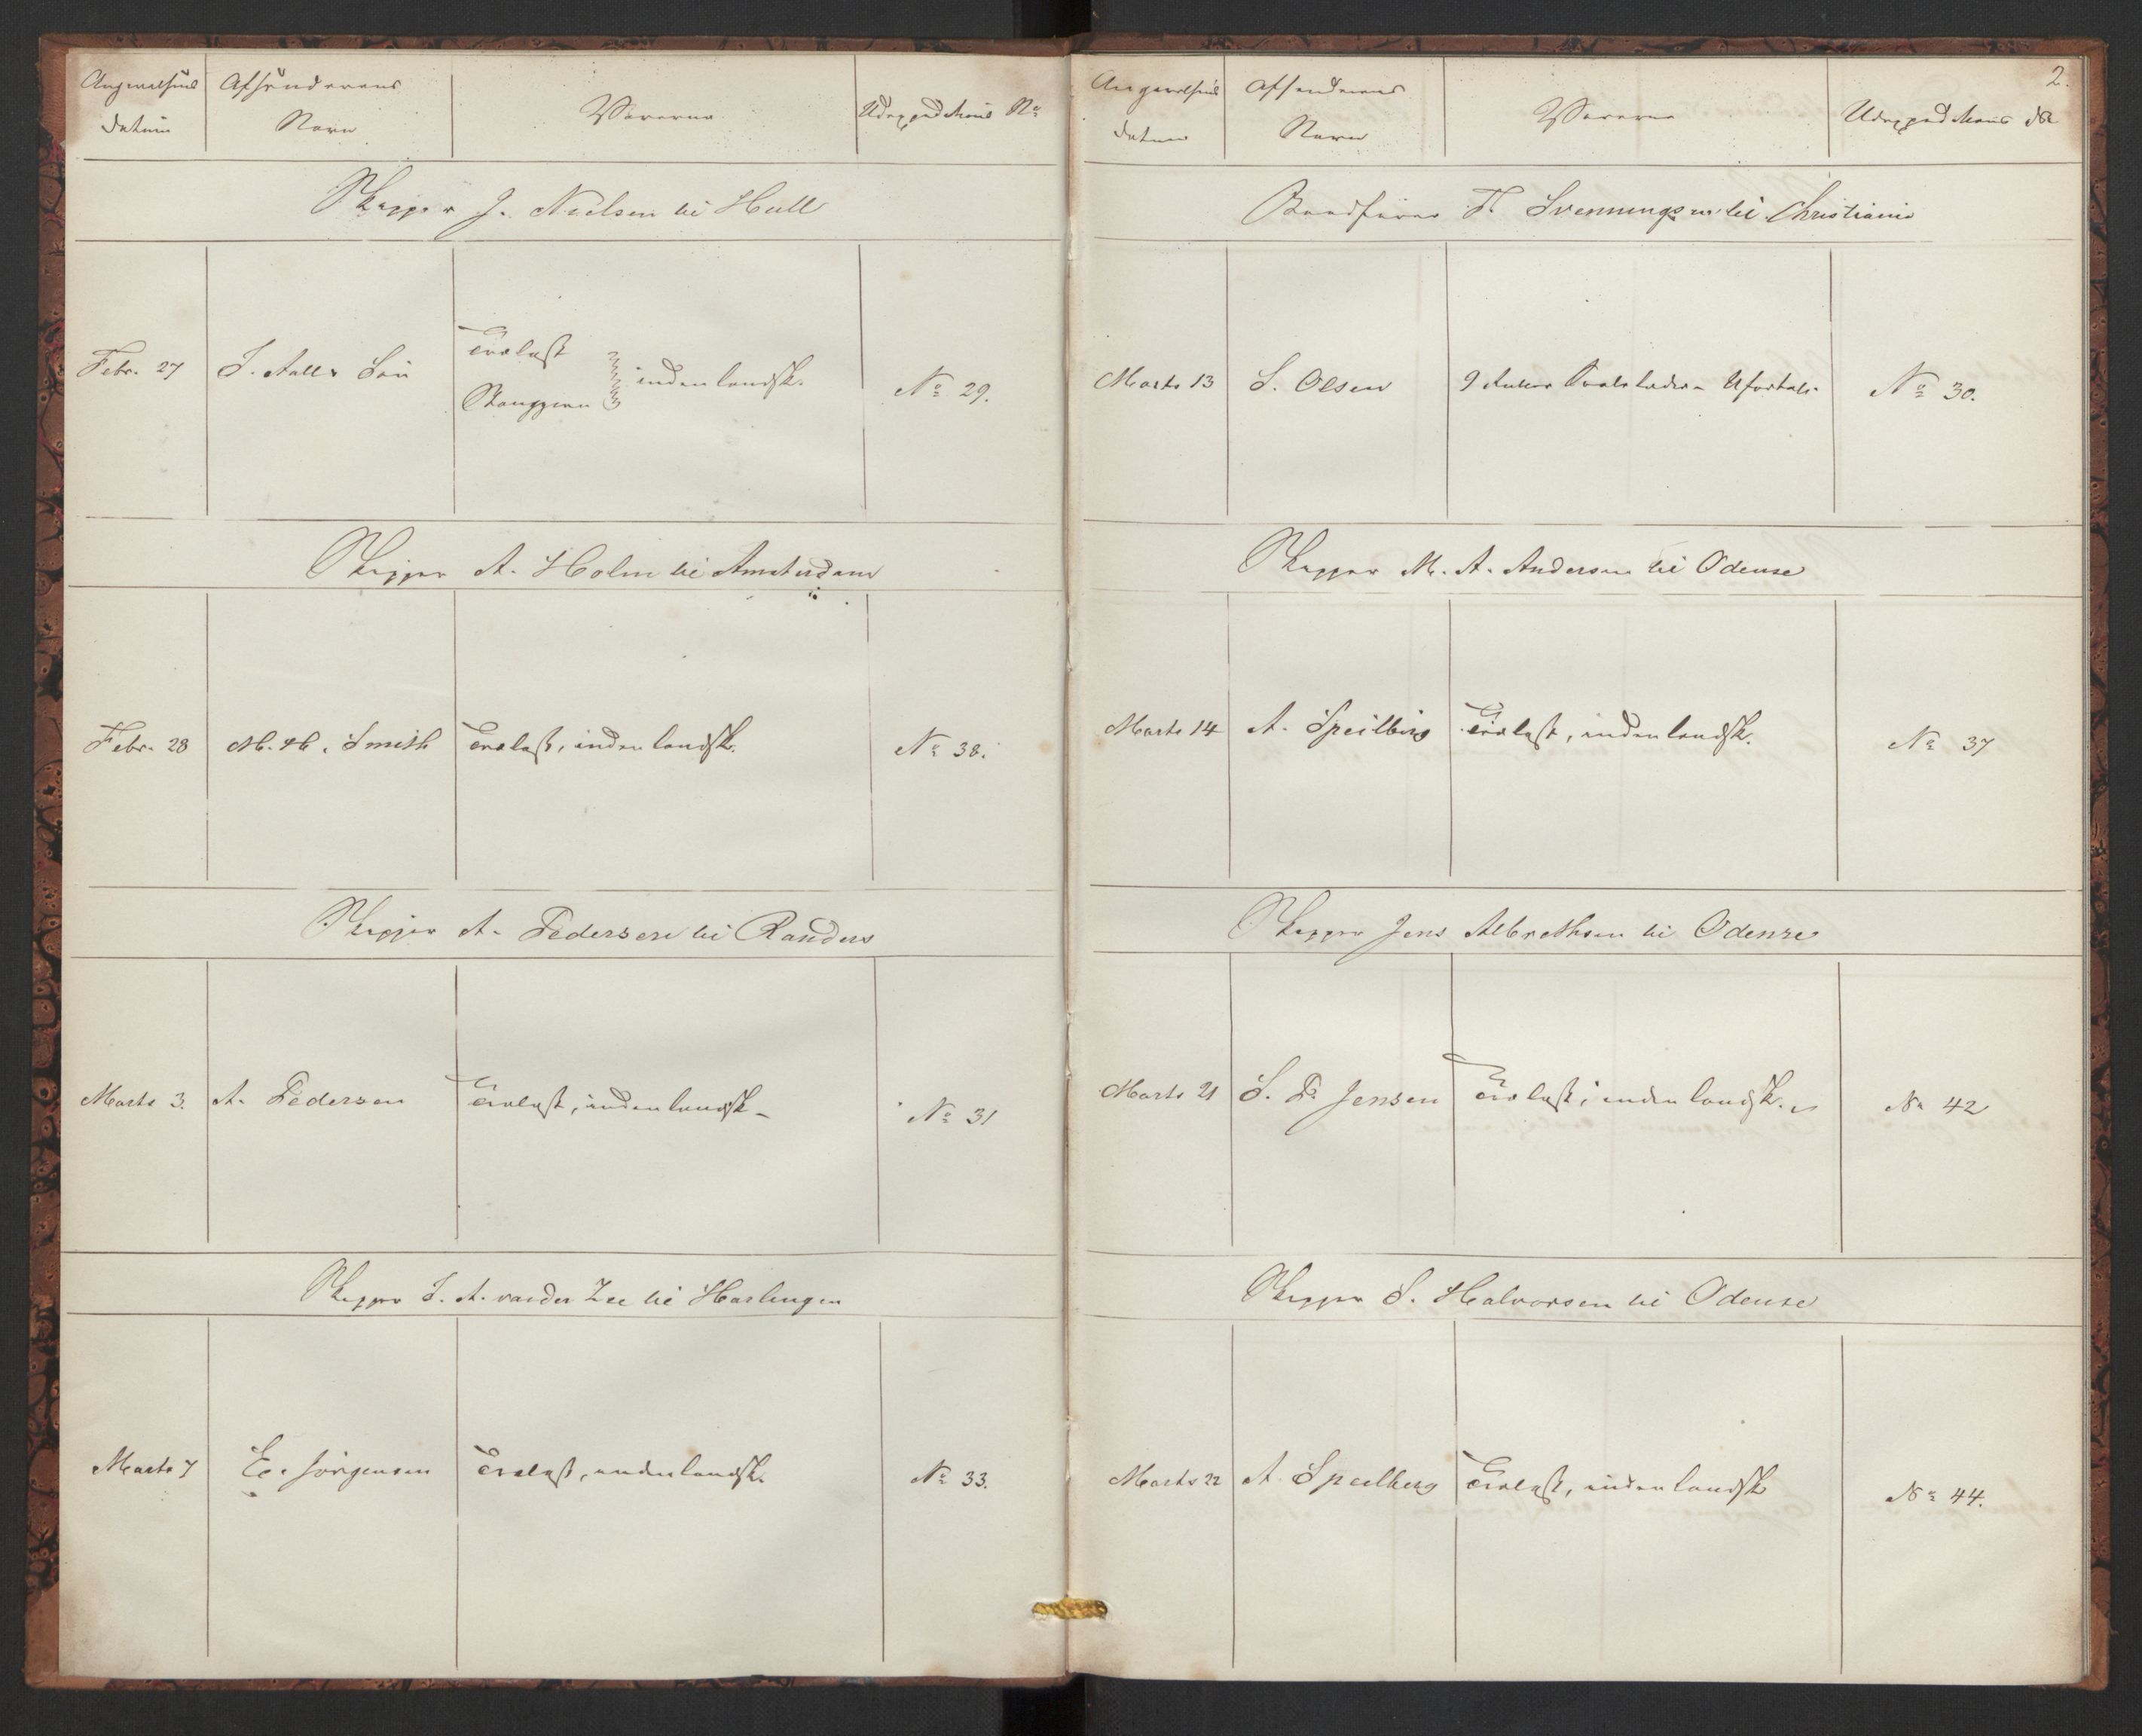 Angivelsens datum
Afsenderens Navn
Varerne
Udexpeditions No
Skipper J. Nielsen til Hull
Febr. 27
J. Aall & Søn
Trælast
indenlandsk.
No 29.
Skipper A. Holm til Amsterdam
Febr. 28
M. H. Smith
Trælast, indenlandsk.
No 38.
Skipper A. Pedersen til Randers
Marts 3.
A. Pedersen
Trælast, indenlandsk
No 31
Skipper J. A. van der Zee til Harlingen
Marts 7
E. Jørgensen
Trælast, indenlandsk.
No 33.
2.
Angivelsens datum
Afsenderens Navn
Varerne
Udexpeditions No
Baadfører T. Svenningsen til Christiania
Marts 13
S. Olsen
9
No 30.
Skipper M. A. Andersen til Odense
Marts 14
A. Speilberg
Trælast, indenlandsk.
No 37
Skipper Jens Albrethsen til Odense
Marts 21
S. P. Jensen
Trælast, indenlandsk.
No 42
Skipper S. Halvorsen til Odense
Marts 22
A. Speilberg
Trælast, indenlandsk
No 44.